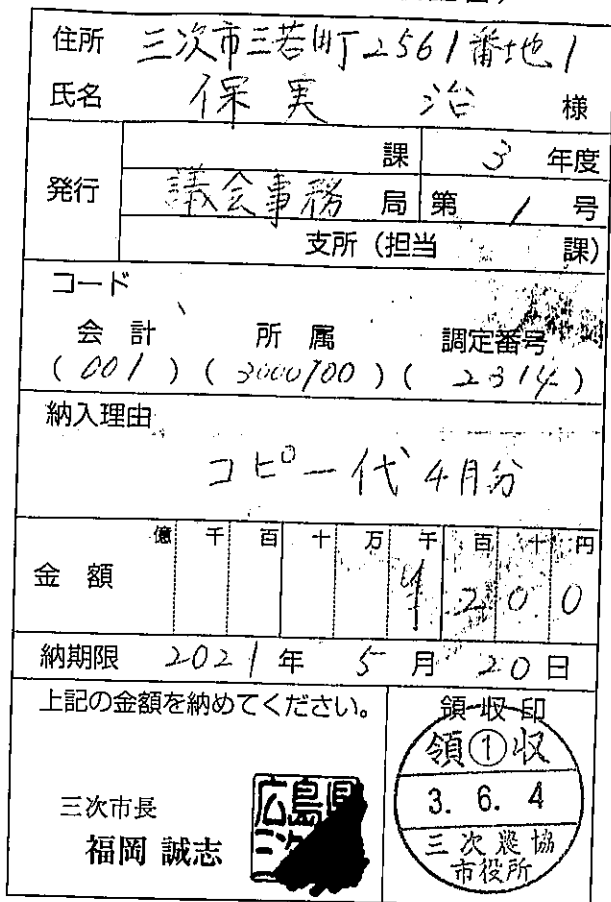 住所 三次市三若町2561番地1
氏名 保実 治 様
発行
課 3 年度
議会事務局 第 1 号
支所（担当 課）
コード
会計 所属 調定番号
(001) (3000700) (2314)
納入理由
コピー代 4月分
億 千 百 十 万 千 百 十 円
金額 ¥ 2 0 0
納期限 2021年 5月 20日
上記の金額を納めてください。
三次市長
福岡 誠志
広島県
領収印
領①収
3. 6. 4
三次農協
市役所